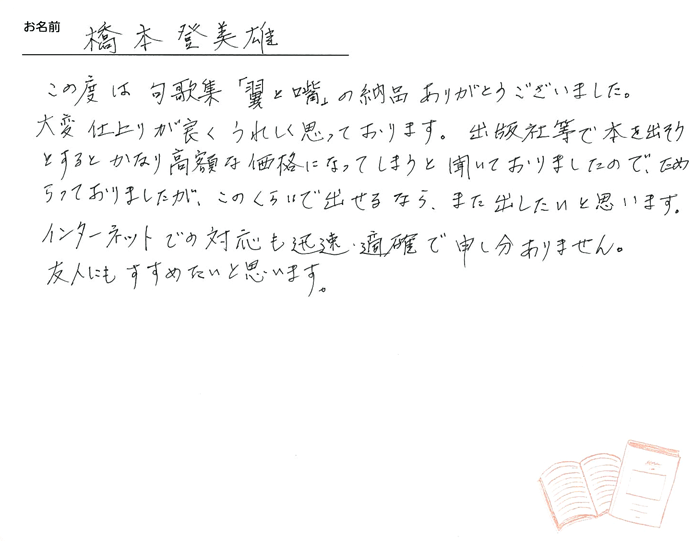 お名前 橋本登美雄
この度は 句歌集「翼と嘴」の納品 ありがとうございました。
大変 仕上りが良く うれしく思っております。出版社等で本を出そう
とすると かなり高額な価格になってしまうと聞いておりましたので、ため
らっておりましたが、このくらいで出せるなら、また出したいと思います。
インターネットでの対応も迅速・適確で申し分ありません。
友人にもすすめたいと思います。